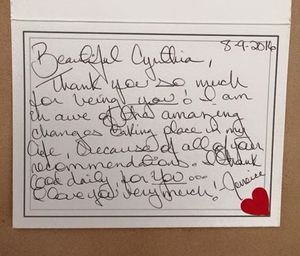 8-4-2016
Beautiful Cynthia,
Thank you so much
for being you! I am
in awe of the amazing
changes taking place in my
life, because of all of your
recommendations. I thank
God daily for you...
I love you very much! Janice